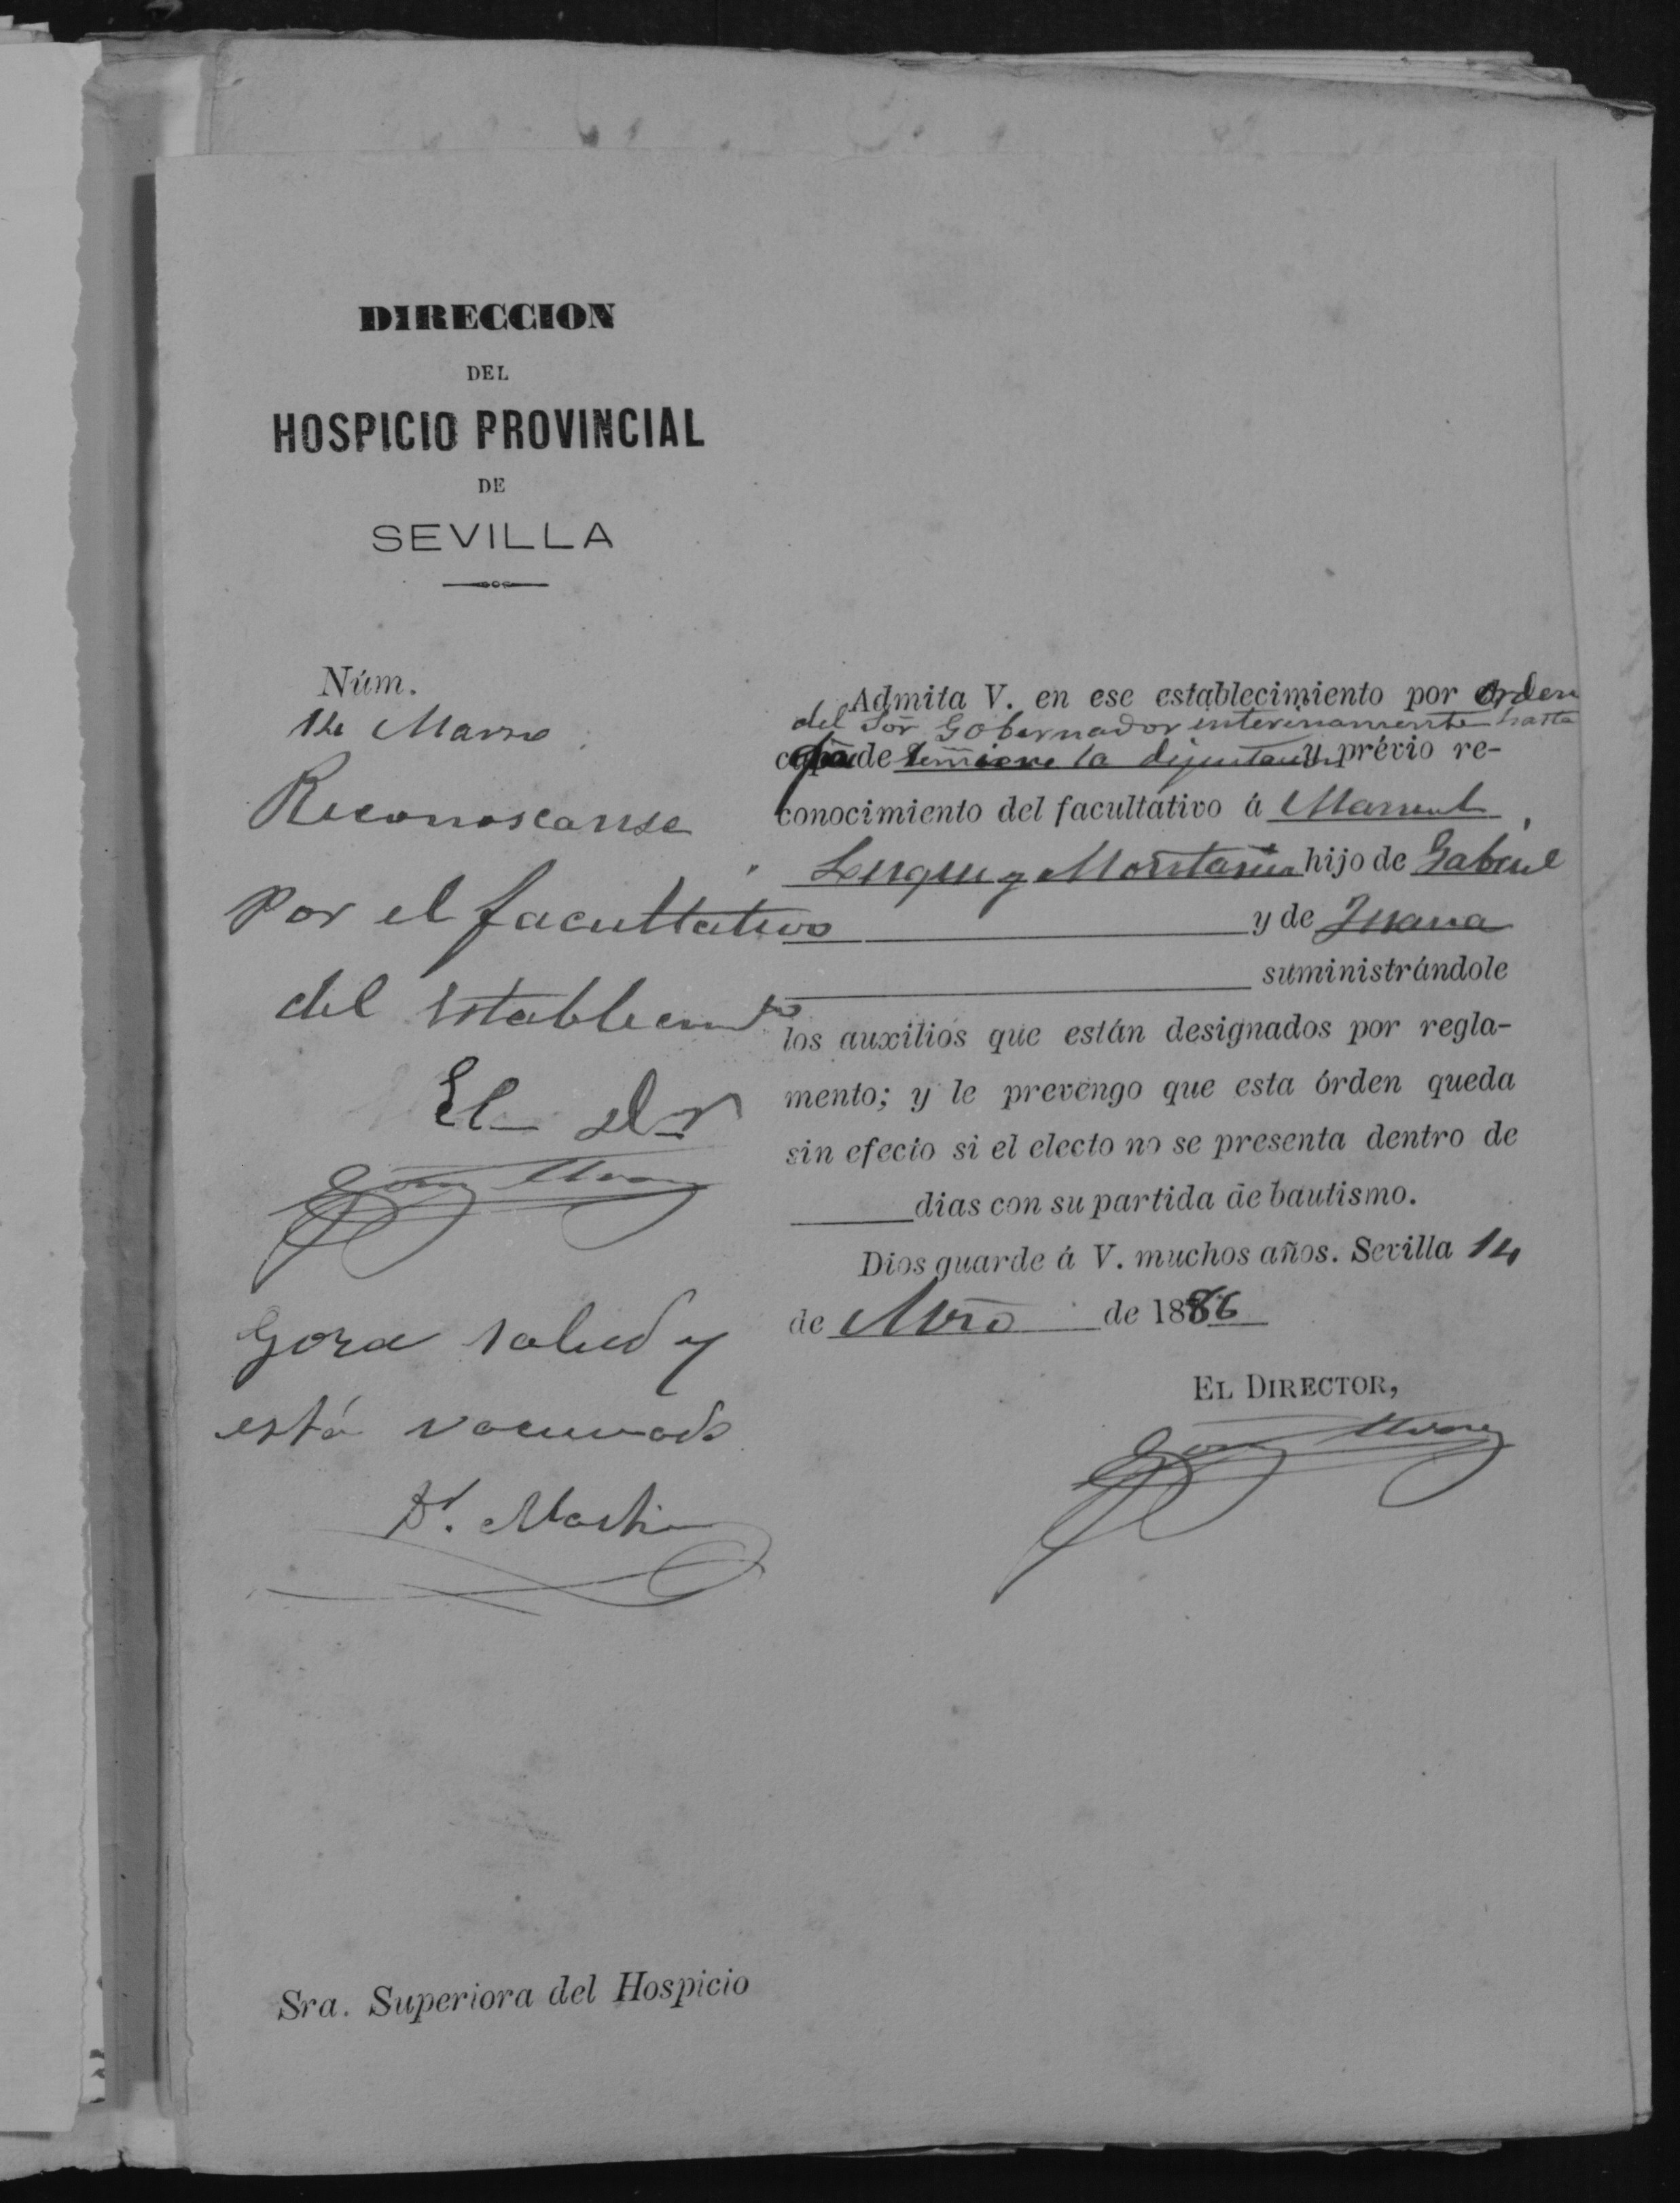 DIRECCION
DEL
HOSPICIO PROVINCIAL
DE
SEVILLA
Núm.
14 Marzo
Reconoscanse
Por el facultativo
del establecimto
El Dr
Goza salud y
está vacunado
Dr. Martin
Admita V. en ese establecimiento por orden
del Sor Gobernador interinamente hasta
de la diputacion y prévio re-
conocimiento del facultativo á Manuel
Luque y Montaño hijo de Gabriel
y de Juana
suministrándole
los auxilios que están designados por regla-
mento; y le prevengo que esta órden queda
sin efecto si el electo no se presenta dentro de
dias con su partida de bautismo.
Dios guarde á V. muchos años. Sevilla 14
de Mzo de 1886
EL DIRECTOR,
Sra. Superiora del Hospicio